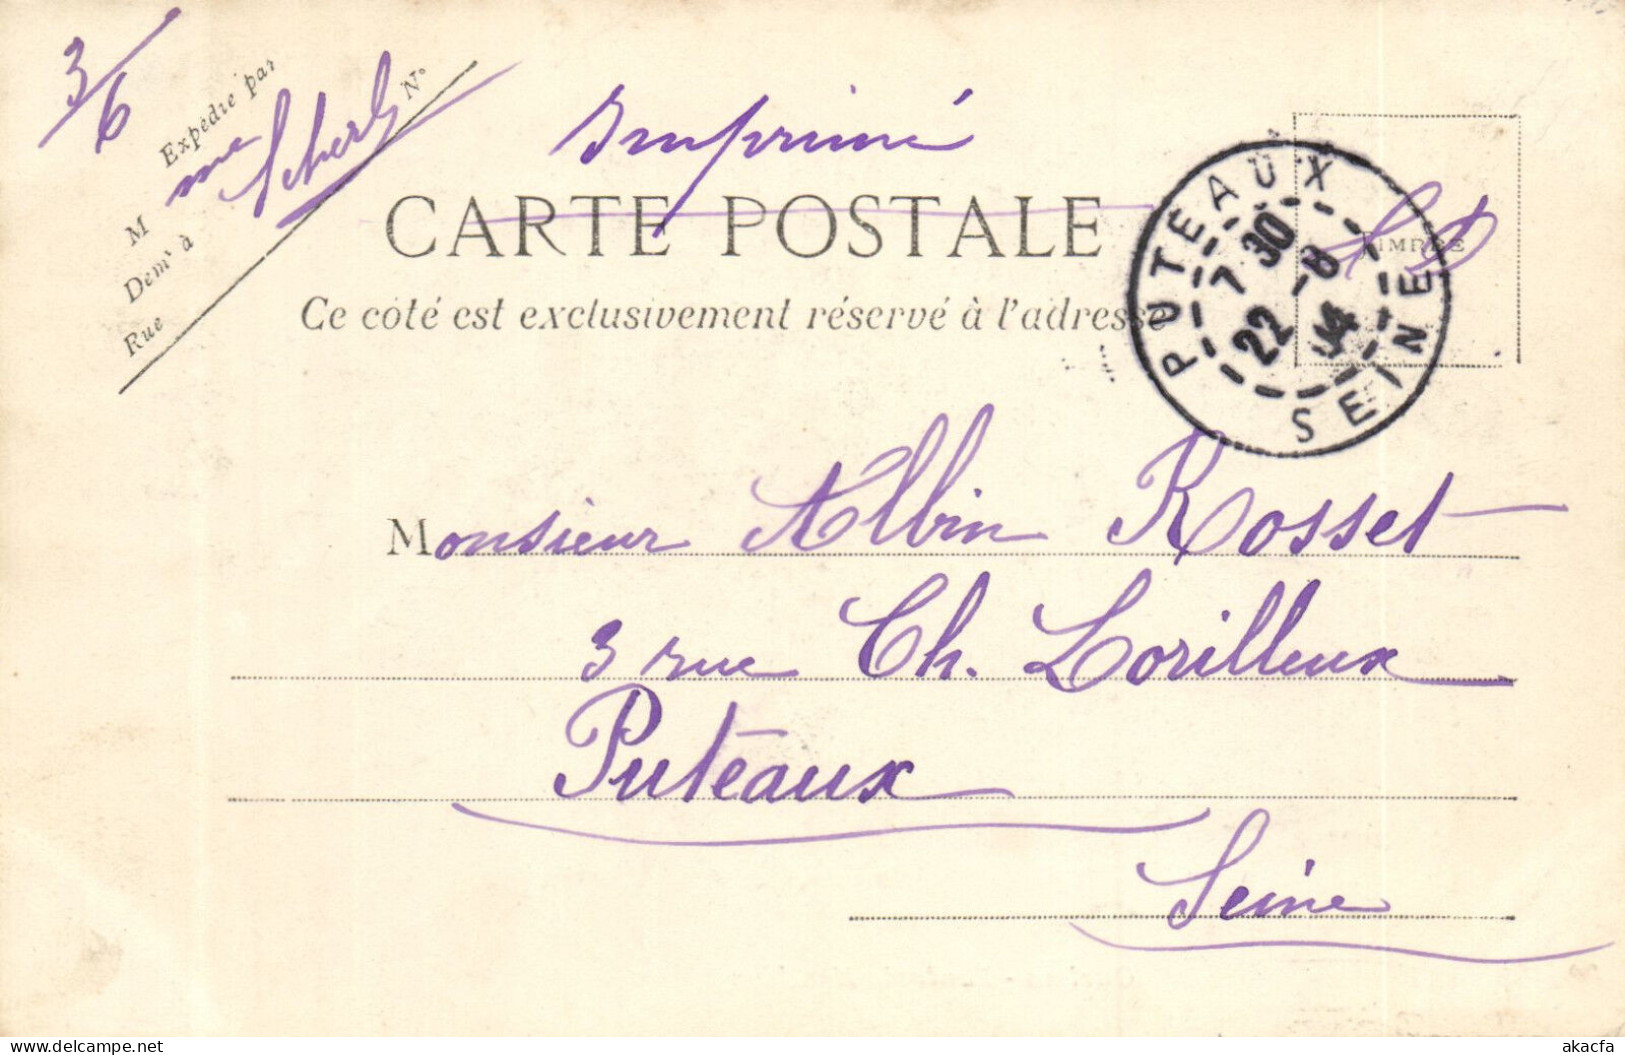 3/6
Expédié par
M me Scherb
Demt à
Rue N°
Imprimé
CARTE POSTALE
Ce côté est exclusivement réservé à l'adresse
TIMBRE
PUTEAUX
7 30
22 -8
04
SEINE
Monsieur Albin Rosset
3 rue Ch. Lorilleux
Puteaux
Seine
www.delcampe.net
akacfa